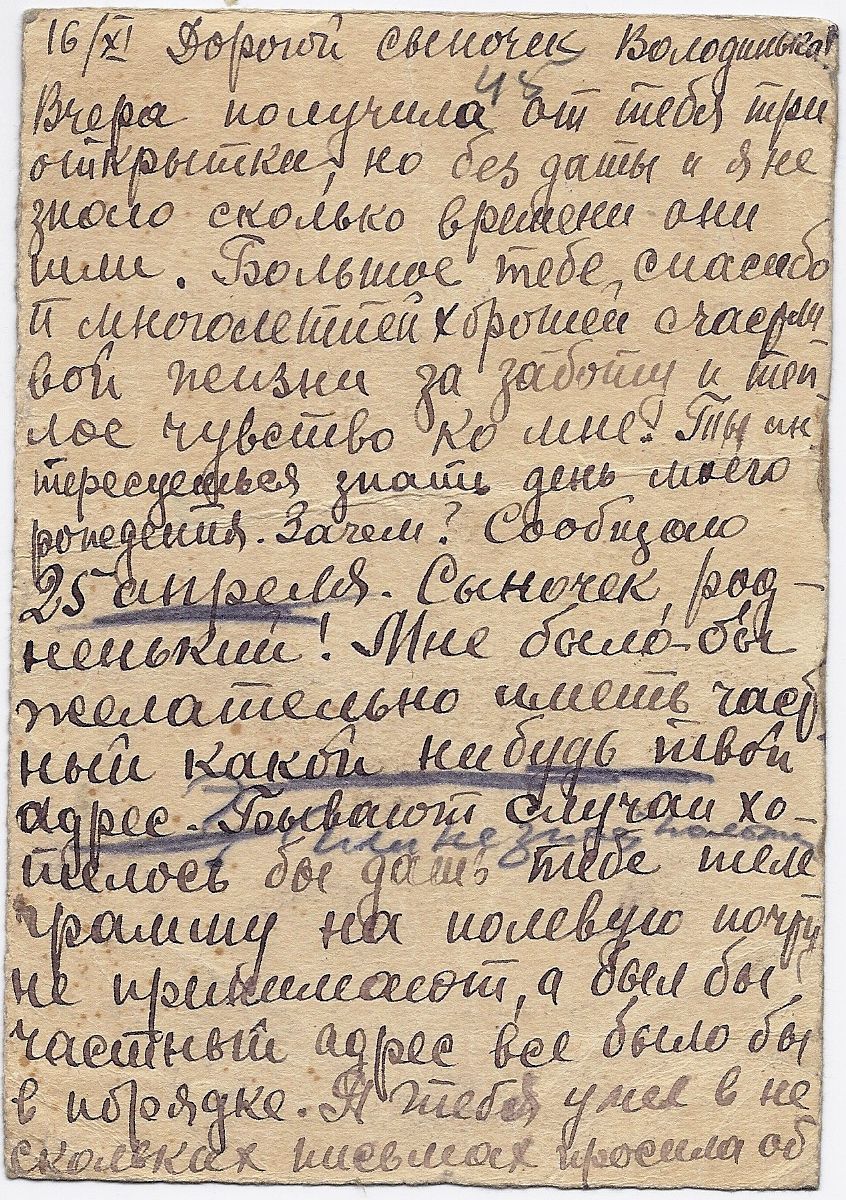 16/XI Дорогой сыночек Володинька!
45
Вчера получила от тебя три
открытки, но без даты и я не
знаю сколько времени они
шли. Большое тебе спасибо
и многолетней хорошей счастли
вой жизни за заботу и теп
лое чувство ко мне! Ты ин
тересуешься знать день моего
рождения. Зачем? Сообщаю
25 апреля. Сыночек, род-
ненький! Мне было-бы
желательно иметь част
ный какой нибудь твой
адрес. Бывают случаи хо-
или не
телось бы дать тебе теле
грамму на полевую почту
не принимают, а был бы
частный адрес все было бы
в порядке. Я тебя уже в не
скольких письмах просила об